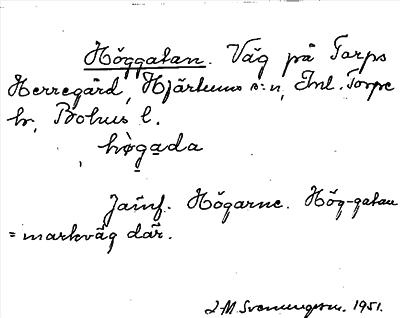 Höggatan. Väg på Torps
Herregård, Hjärtums s:n, Inl. Torpe
hr, Bohus l.
högada
Jämf. Högarne. Hög-gatan
= markväg där.
J.M. Svenungsson. 1951.